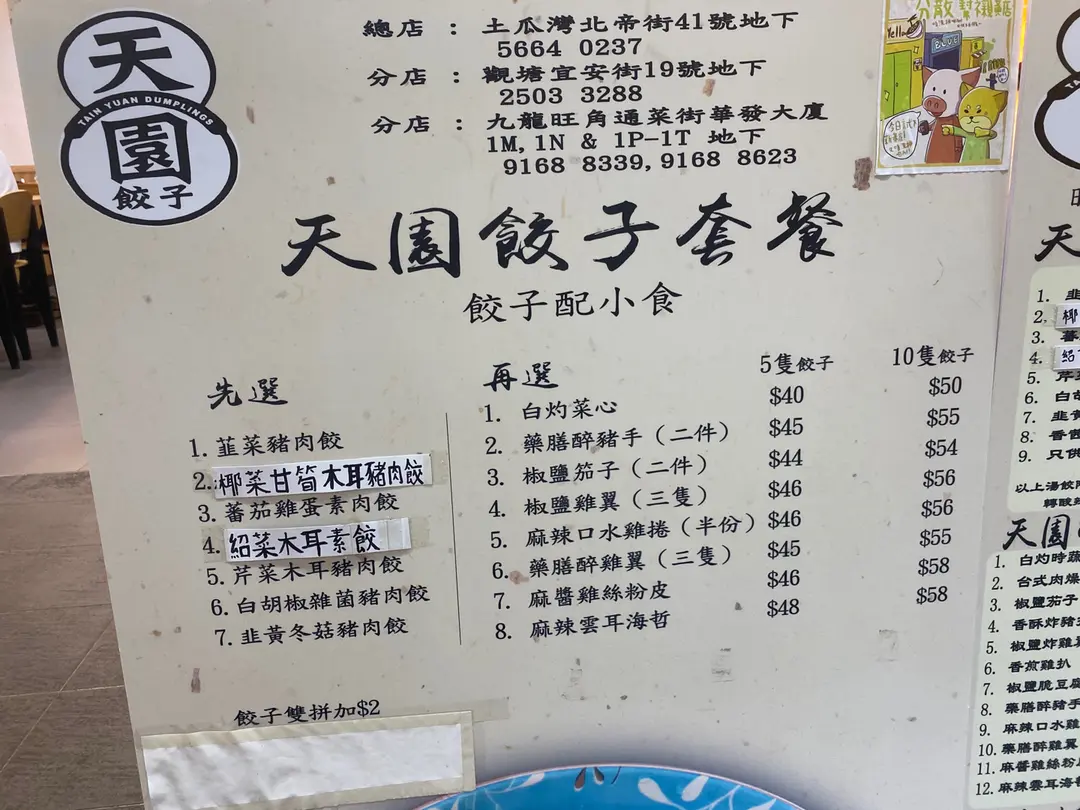 天
TAIN YUAN DUMPLINGS
園
餃子
總店 : 土瓜灣北帝街41號地下
5664 0237
分店 : 觀塘宜安街19號地下
2503 3288
分店 : 九龍旺角通菜街華發大廈
1M,1N & 1P-1T 地下
9168 8339,9168 8623
天園餃子套餐
餃子配小食
先選
1. 韮菜豬肉餃
2. 椰菜甘筍木耳豬肉餃
3. 蕃茄雞蛋素肉餃
4. 紹菜木耳素餃
5. 芹菜木耳豬肉餃
6. 白胡椒雜菌豬肉餃
7. 韭黃冬菇豬肉餃
餃子雙拼加$2
再選 5隻餃子 10隻餃子
1. 白灼菜心 $40 $50
2. 藥膳醉豬手（二件） $45 $55
3. 椒鹽茄子（二件） $44 $54
4. 椒鹽雞翼（三隻） $46 $56
5. 麻辣口水雞捲（半份） $46 $56
6. 藥膳醉雞翼（三隻） $45 $55
7. 麻醬雞絲粉皮 $46 $58
8. 麻辣雲耳海哲 $48 $58
Yellow
BLUE
天
1.
2. 椰
3. 蕃
4. 紹
5. 芹
6. 白胡
7. 韭黃
8. 香茜
9. 只供
以上湯餃
轉酸辣
天園
1. 白灼時蔬
2. 台式肉燥
3. 椒鹽茄子
4. 香酥炸豬
5. 椒鹽炸雞
6. 香煎雞扒
7. 椒鹽脆豆腐
8. 藥膳醉豬手
9. 麻辣口水雞
10. 藥膳醉雞翼
11. 麻醬雞絲粉
12. 麻辣雲耳海